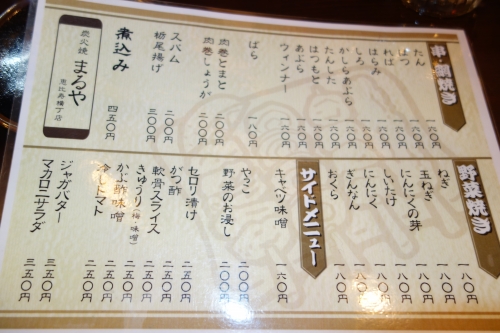 串・網焼き
たん 一六〇円
はつ 一六〇円
れば 一六〇円
はらみ 一六〇円
しろ 一六〇円
かしらあぶら 一六〇円
たんした 一六〇円
はつもと 一六〇円
あぶら 一六〇円
ウィンナー 一六〇円
ばら 一八〇円
肉巻とまと 二〇〇円
肉巻しょうが 二〇〇円
スパム 二〇〇円
栃尾揚げ 三〇〇円
煮込み 四五〇円
炭火焼 まるや 恵比寿横丁店
野菜焼き
ねぎ 一八〇円
玉ねぎ 一八〇円
にんにくの芽 一八〇円
しいたけ 一八〇円
にんにく 一八〇円
ぎんなん 一八〇円
おくら 一八〇円
サイドメニュー
キャベツ味噌 六〇円
やっこ 二〇〇円
野菜のお浸し 二〇〇円
セロリ漬け 二五〇円
がつ酢 二五〇円
軟骨スライス 二五〇円
きゅうり(梅・味噌) 二五〇円
かぶ酢味噌 二五〇円
冷しトマト 二五〇円
ジャガバター 三五〇円
マカロニサラダ 三五〇円